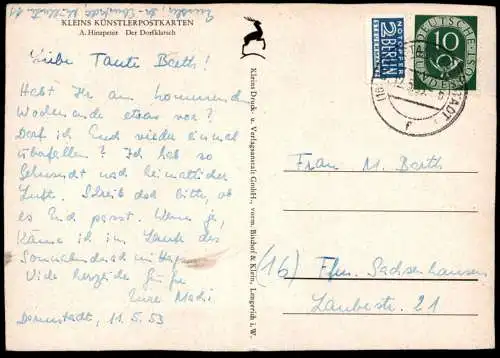 KLEINS KÜNSTLERPOSTKARTEN
A. Hinzpeter Der Dorfklatsch
Liebe Tante Berth!
Habt Ihr am kommenden
Wochenende etwas vor?
Darf ich Euch wieder einmal
überfallen? Ich hab so
Sehnsucht nach heimatlicher
Luft. Schreib doch bitte, ob
es Euch passt. Wenn ja,
käme ich im Laufe des
Sonnabendnachmittags.
Viele herzliche Grüße
Eure
Darmstadt, 11.5.53
Kleins Druck- u. Verlagsanstalt GmbH., vorm. Bischof & Klein, Lengerich i. W.
NOTOPFER
2 BERLIN
STEUERMARKE
DEUTSCHE BUNDESPOST
10
STADT
Frau M. Berth
(16) Ffm. Sachsenhausen
Laubestr. 21